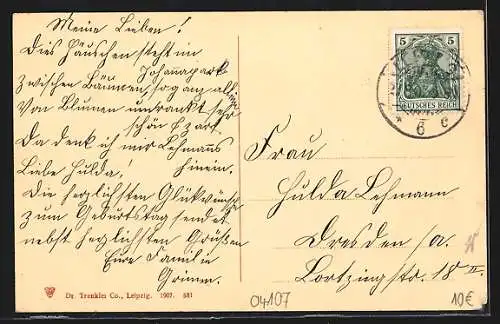 Meine Lieben!
Dies Häuschen steht im
Johannapark
zwischen Bäumen, so ganz allein
Von Blumen umrankt sehr
schön & zart.
Da denk ich mir Lehmanns
hinein.
Liebe Hulda!
Die herzlichsten Glückwünsche
zum Geburtstag sendet
nebst herzlichsten Grüßen
Eure Familie
Grimm.
Dr. Trenkler Co., Leipzig. 1907. 581
04107
5 5
DEUTSCHES REICH
* 6 c
Frau
Hulda Lehmann
Dresden /a.
Lortzingstr. 18 II.
10€